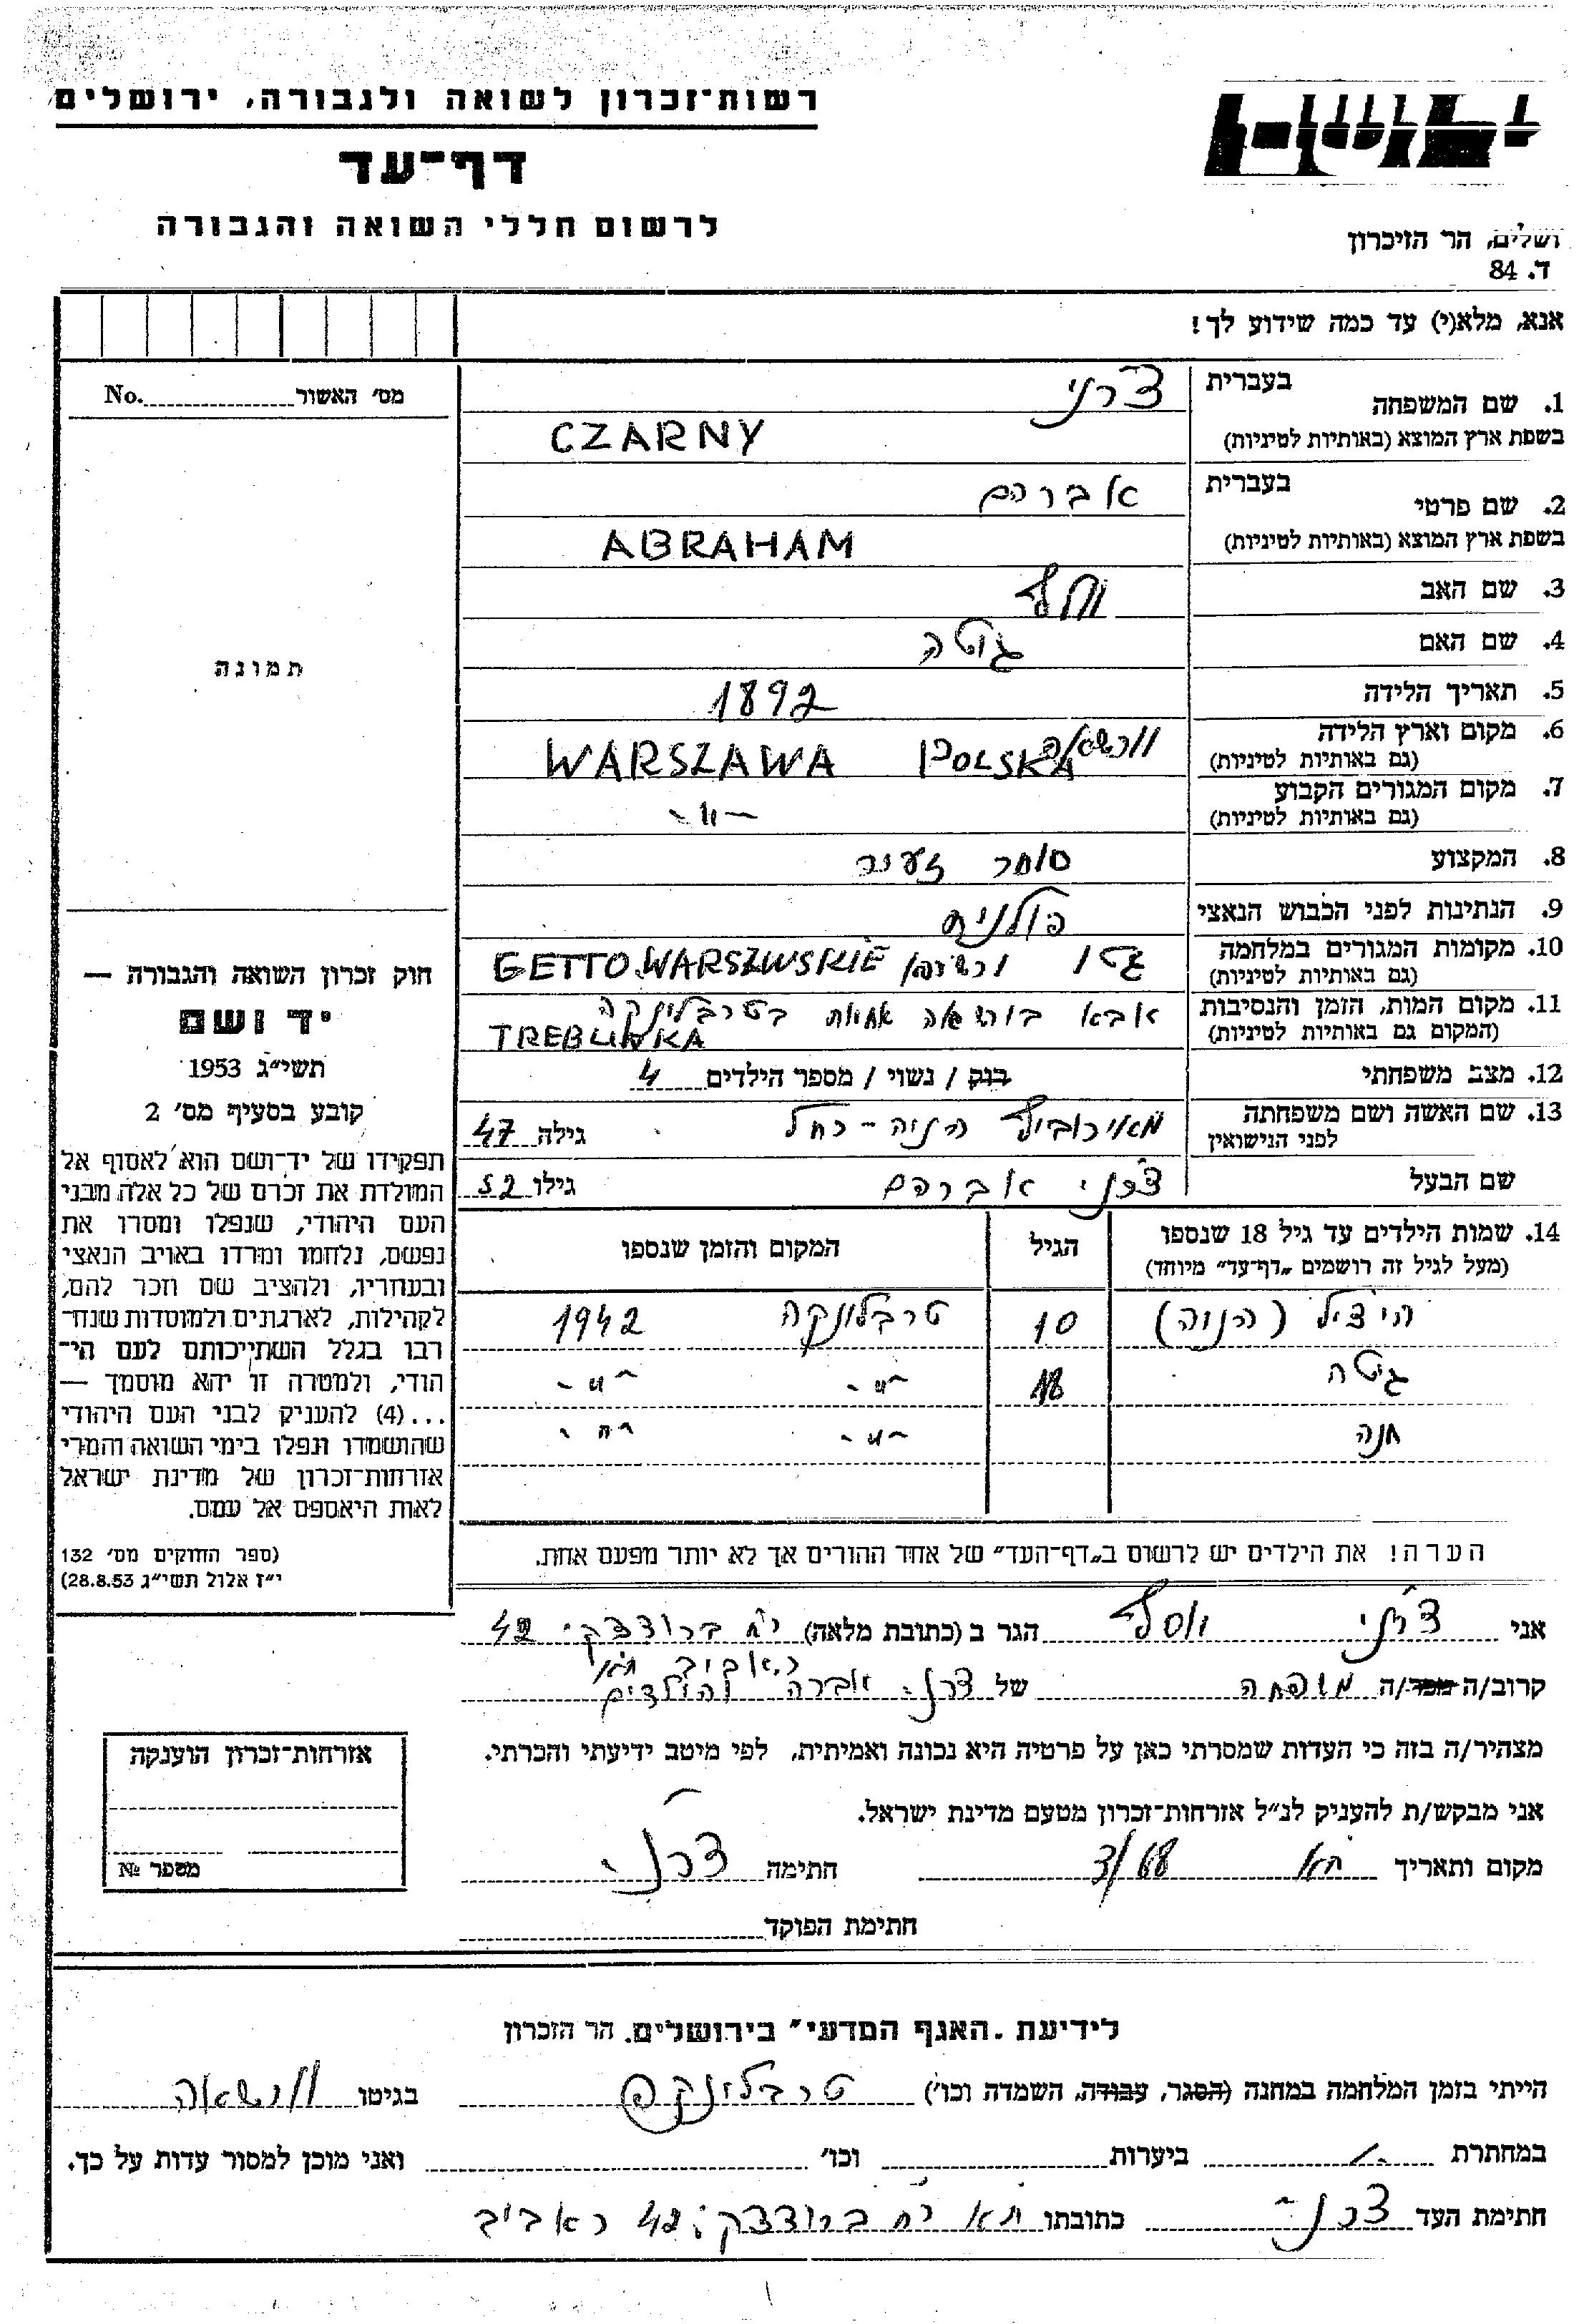 רשות־זכרון לשואה ולגבורה, ירושלים
דף־עד
לרשום חללי השואה והגבורה
ושלים, הר הזיכרון
ד. 84
אנא, מלא(י) עד כמה שידוע לך!
מס׳ האשור No.
תמונה
חוק זכרון השואה והגבורה —
יד ושם
תשי״ג 1953
קובע בסעיף מס׳ 2
תפקידו של יד־ושם הוא לאסוף אל
המולדת את זכרם של כל אלה מבני
העם היהודי, שנפלו ומסרו את
נפשם, נלחמו ומרדו באויב הנאצי
ובעוזריו, ולהציב שם וזכר להם,
לקהילות, לארגונים ולמוסדות שנח־
רבו בגלל השתייכותם לעם הי־
הודי, ולמטרה זו יהא מוסמך —
...(4) להעניק לבני העם היהודי
שהושמדו ונפלו בימי השואה והמרי
אזרחות־זכרון של מדינת ישראל
לאות היאספם אל עמם.
(ספר החוקים מס׳ 132
י״ז אלול תשי״ג 28.8.53)
1. שם המשפחה בעברית צ׳רני
בשפת ארץ המוצא (באותיות לטיניות) CZARNY
2. שם פרטי בעברית אברהם
בשפת ארץ המוצא (באותיות לטיניות) ABRAHAM
3. שם האב
4. שם האם גוטה
5. תאריך הלידה 1892
6. מקום וארץ הלידה (גם באותיות לטיניות) WARSZAWA POLSKA
7. מקום המגורים הקבוע (גם באותיות לטיניות) -"-
8. המקצוע סוחר זעיר
9. הנתינות לפני הכבוש הנאצי פולנית
10. מקומות המגורים במלחמה (גם באותיות לטיניות) גטו GETTO WARSZWSKIE
11. מקום המות, הזמן והנסיבות (המקום גם באותיות לטיניות) בטרבלינקה
TREBLINKA
12. מצב משפחתי רוק / נשוי / מספר הילדים 4
13. שם האשה ושם משפחתה לפני הנישואין הניה - רחל גילה 47
שם הבעל צ׳רני אברהם גילו 52
14. שמות הילדים עד גיל 18 שנספו הגיל המקום והזמן שנספו
(מעל לגיל זה רושמים „דף־עד״ מיוחד)
10 טרבלינקה 1942
גיטה 18 -"- -"-
חנה -"- -"-
הערה! את הילדים יש לרשום ב„דף־העד״ של אחד ההורים אך לא יותר מפעם אחת.
אני צ׳רני יוסף הגר ב (כתובת מלאה) 42
קרוב/ה מכר/ה משפחה של צ׳רני והילדים
מצהיר/ה בזה כי העדות שמסרתי כאן על פרטיה היא נכונה ואמיתית, לפי מיטב ידיעתי והכרתי.
אני מבקש/ת להעניק לנ״ל אזרחות־זכרון מטעם מדינת ישראל.
מקום ותאריך ת״א חתימה צ׳רני
חתימת הפוקד
אזרחות־זכרון הוענקה
מספר №
לידיעת „האגף המדעי״ בירושלים. הר הזכרון
הייתי בזמן המלחמה במחנה (הסגר, עבודה, השמדה וכו׳) טרבלינקה בגיטו
במחתרת ביערות וכו׳ ואני מוכן למסור עדות על כך.
חתימת העד צ׳רני כתובתו ת״א